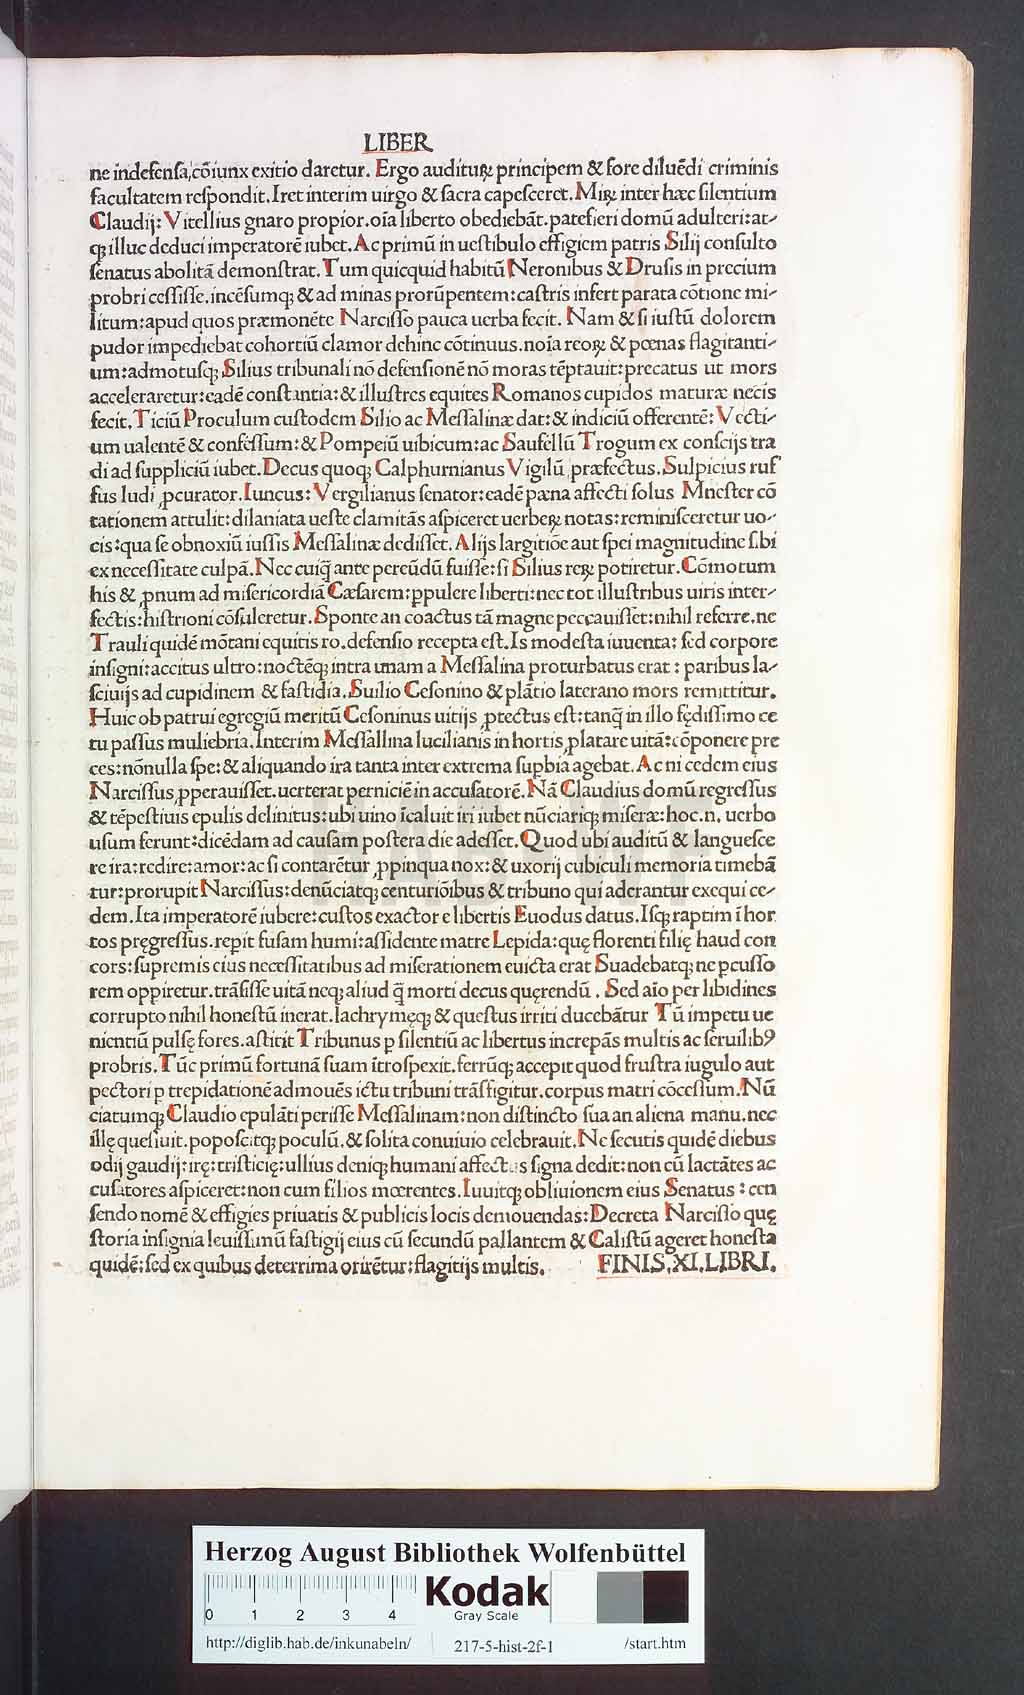 LIBER
ne īdefensa,cōiunx exitio daretur. Ergo audituꝝ principem & fore diluēdi criminis
facultatem respondit. Iret interim uirgo & sacra capesceret. Miꝝ inter hæc silentium
Claudij: Vitellius gnaro propior. oīa liberto obediebāt. patefieri domū adulteri: at-
qꝫ illuc deduci imperatorē iubet. Ac primū in uestibulo effigiem patris Silij consulto
senatus abolitā demonstrat. Tum quicquid habitū Neronibus & Drusis in precium
probri cessisse. incēsumqꝫ & ad minas prorūpentem: castris infert parata cōtione mi-
litum: apud quos præmonēte Narcisso pauca uerba fecit. Nam & si iustū dolorem
pudor impediebat cohortiū clamor dehinc cōtinuus. noīa reoꝝ & pœnas flagitanti-
um: admotusqꝫ Silius tribunali nō defensionē nō moras tēptauit: precatus ut mors
acceleraretur: eadē constantia: & illustres equites Romanos cupidos maturæ necis
fecit. Ticiū Proculum custodem Silio ac Messalinæ dat: & indiciū offerentē: Vecti-
um ualentē & confessum: & Pompeiū uibicum: ac Saufellū Trogum ex conscijs tra
di ad suppliciū iubet. Decus quoqꝫ Calphurnianus Vigilū præfectus. Sulpicius ruf
fus ludi ꝓcurator. Iuncus: Vergilianus senator: eadē pæna affecti solus Mnester cō
tationem attulit: dilaniata ueste clamitās aspiceret uerbeꝝ notas: reminisceretur uo-
cis: qua se obnoxiū iussis Messalinæ dedisset. Alijs largitiōe aut spei magnitudine sibi
ex necessitate culpā. Nec cuiq̄ ante pereūdū fuisse: si Silius reꝝ potiretur. Cōmotum
his & ꝓnum ad misericordiā Cæsarem: ꝑpulere liberti: nec tot illustribus uiris inter-
fectis: histrioni cōsuleretur. Sponte an coactus tā magne peccauisset: nihil referre. ne
Trauli quidē mōtani equitis ro. defensio recepta est. Is modesta iuuenta: sed corpore
insigni: accitus ultro: noctēqꝫ intra unam a Messalina proturbatus erat: paribus la-
sciuijs ad cupidinem & fastidia. Suilio Cesonino & plātio laterano mors remittitur.
Huic ob patrui egregiū meritū Cesoninus uitijs ꝓtectus est: tanq̄ in illo fędissimo ce
tu passus muliebria. Interim Messallina lucilianis in hortis ꝓlatare uitā: cōponere pre
ces: nōnulla spe: & aliquando ira tanta inter extrema suꝑbia agebat. Ac ni cedem eius
Narcissus ꝓperauisset. uerterat perniciē in accusatorē. Nā Claudius domū regressus
& tēpestiuis epulis delinitus: ubi uino īcaluit iri iubet nūciariqꝫ miseræ: hoc .n. uerbo
usum ferunt: dicēdam ad causam postera die adesset. Quod ubi auditū & languesce
re ira: redire: amor: ac si contarētur ꝓpinqua nox: & uxorij cubiculi memoria timebā
tur: prorupit Narcissus: denūciatqꝫ centuriōibus & tribuno qui aderantur exequi ce-
dem. Ita imperatorē iubere: custos exactor e libertis Euodus datus. Isqꝫ raptim ī hor
tos pręgressus. reꝑit fusam humi: assidente matre Lepida: quę florenti filię haud con
cors: supremis eius necessitatibus ad miserationem euicta erat Suadebatqꝫ ne ꝑcusso
rem oppiretur. trāsisse uitā neqꝫ aliud q̄ morti decus quęrendū. Sed aīo per libidines
corrupto nihil honestū inerat. lachrymęqꝫ & questus irriti ducebātur Tū impetu ue
nientiū pulsę fores. astitit Tribunus ꝑ silentiū ac libertus increpās multis ac seruilibꝰ
probris. Tūc primū fortunā suam ītrospexit. ferrūqꝫ accepit quod frustra iugulo aut
pectori ꝑ trepidationē admouēs ictu tribuni trāsfigitur. corpus matri cōcessum. Nū
ciatumqꝫ Claudio epulāti perisse Messalinam: non distincto sua an aliena manu. nec
illę quesiuit. poposcitqꝫ poculū. & solita conuiuio celebrauit. Ne secutis quidē diebus
odij gaudij: irę: tristicię: ullius deniqꝫ humani affectus signa dedit: non cū lactātes ac
cusatores aspiceret: non cum filios mœrentes. Iuuitqꝫ obliuionem eius Senatus: cen
sendo nomē & effigies priuatis & publicis locis demouendas: Decreta Narcisso quę
storia insignia leuissimū fastigij eius cū secundū pallantem & Calistū ageret honesta
quidē: sed ex quibus deterrima orirētur: flagitijs multis. FINIS. XI. LIBRI.
HAB WF
Herzog August Bibliothek Wolfenbüttel
0 1 2 3 4
Kodak
Gray Scale
http://diglib.hab.de/inkunabeln/ 217-5-hist-2f-1 /start.htm